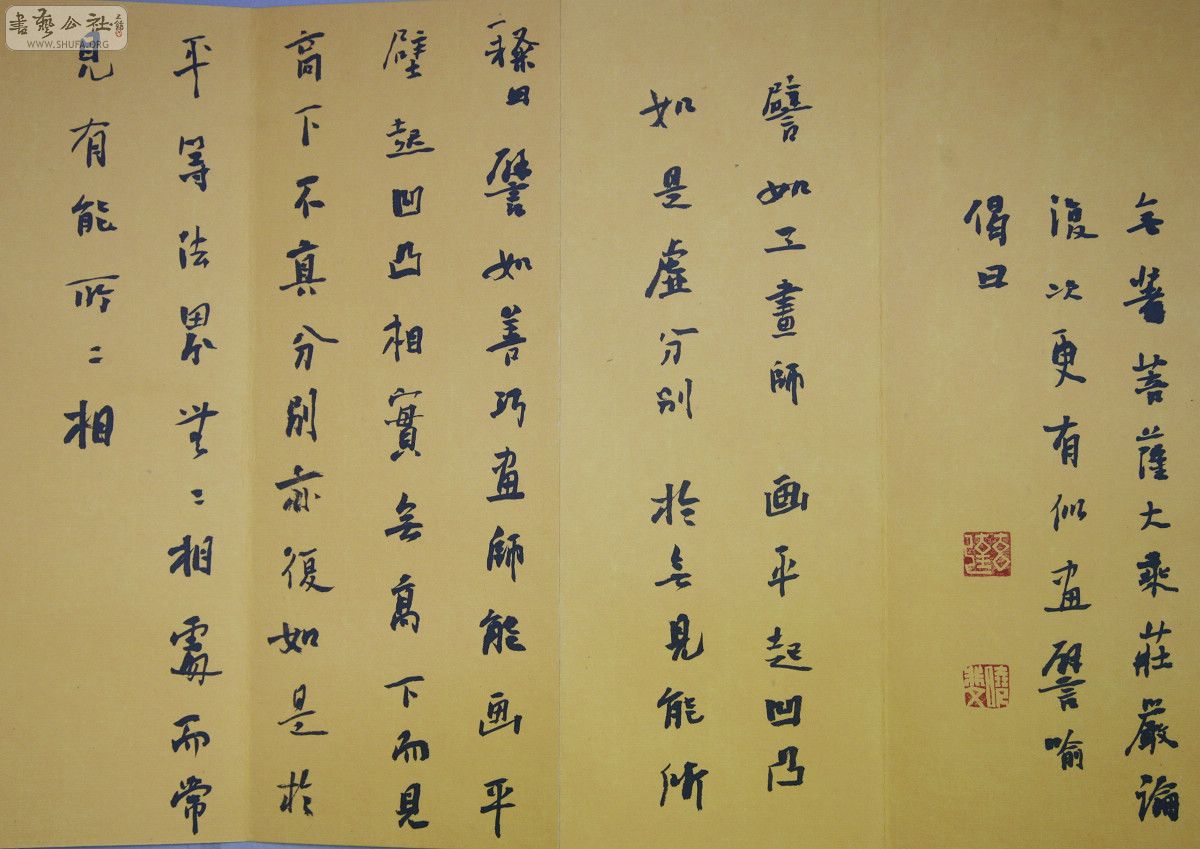 无著菩薩大乘莊嚴論
復次更有似画譬喻
偈曰
譬如工畫師 画平起凹凸
如是虛分別 於无見能所
釋曰譬如善巧画師能画平
壁起凹凸相實无高下而見
高下不真分別亦復如是於
平等法界無二相處而常
見有能所二相
書藝公社
WWW.SHUFA.ORG